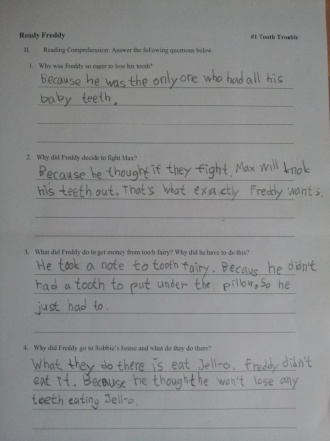 Ready Freddy #1 Tooth Trouble
II. Reading Comprehension: Answer the following questions below.
1. Why was Freddy so eager to lose his tooth?
Because he was the only one who had all his
baby teeth.
2. Why did Freddy decide to fight Max?
Because he thought if they fight, Max will knok
his teeth out. That's what exactly Freddy wants.
3. What did Freddy do to get money from tooth fairy? Why did he have to do this?
He took a note to tooth fairy. Becaus he didn't
had a tooth to put under the pillow. So he
just had to.
4. Why did Freddy go to Robbie's house and what do they do there?
What they do there is eat Jell-o. Freddy didn't
eat it. Because he thought he won't lose any
teeth eating Jell-o.